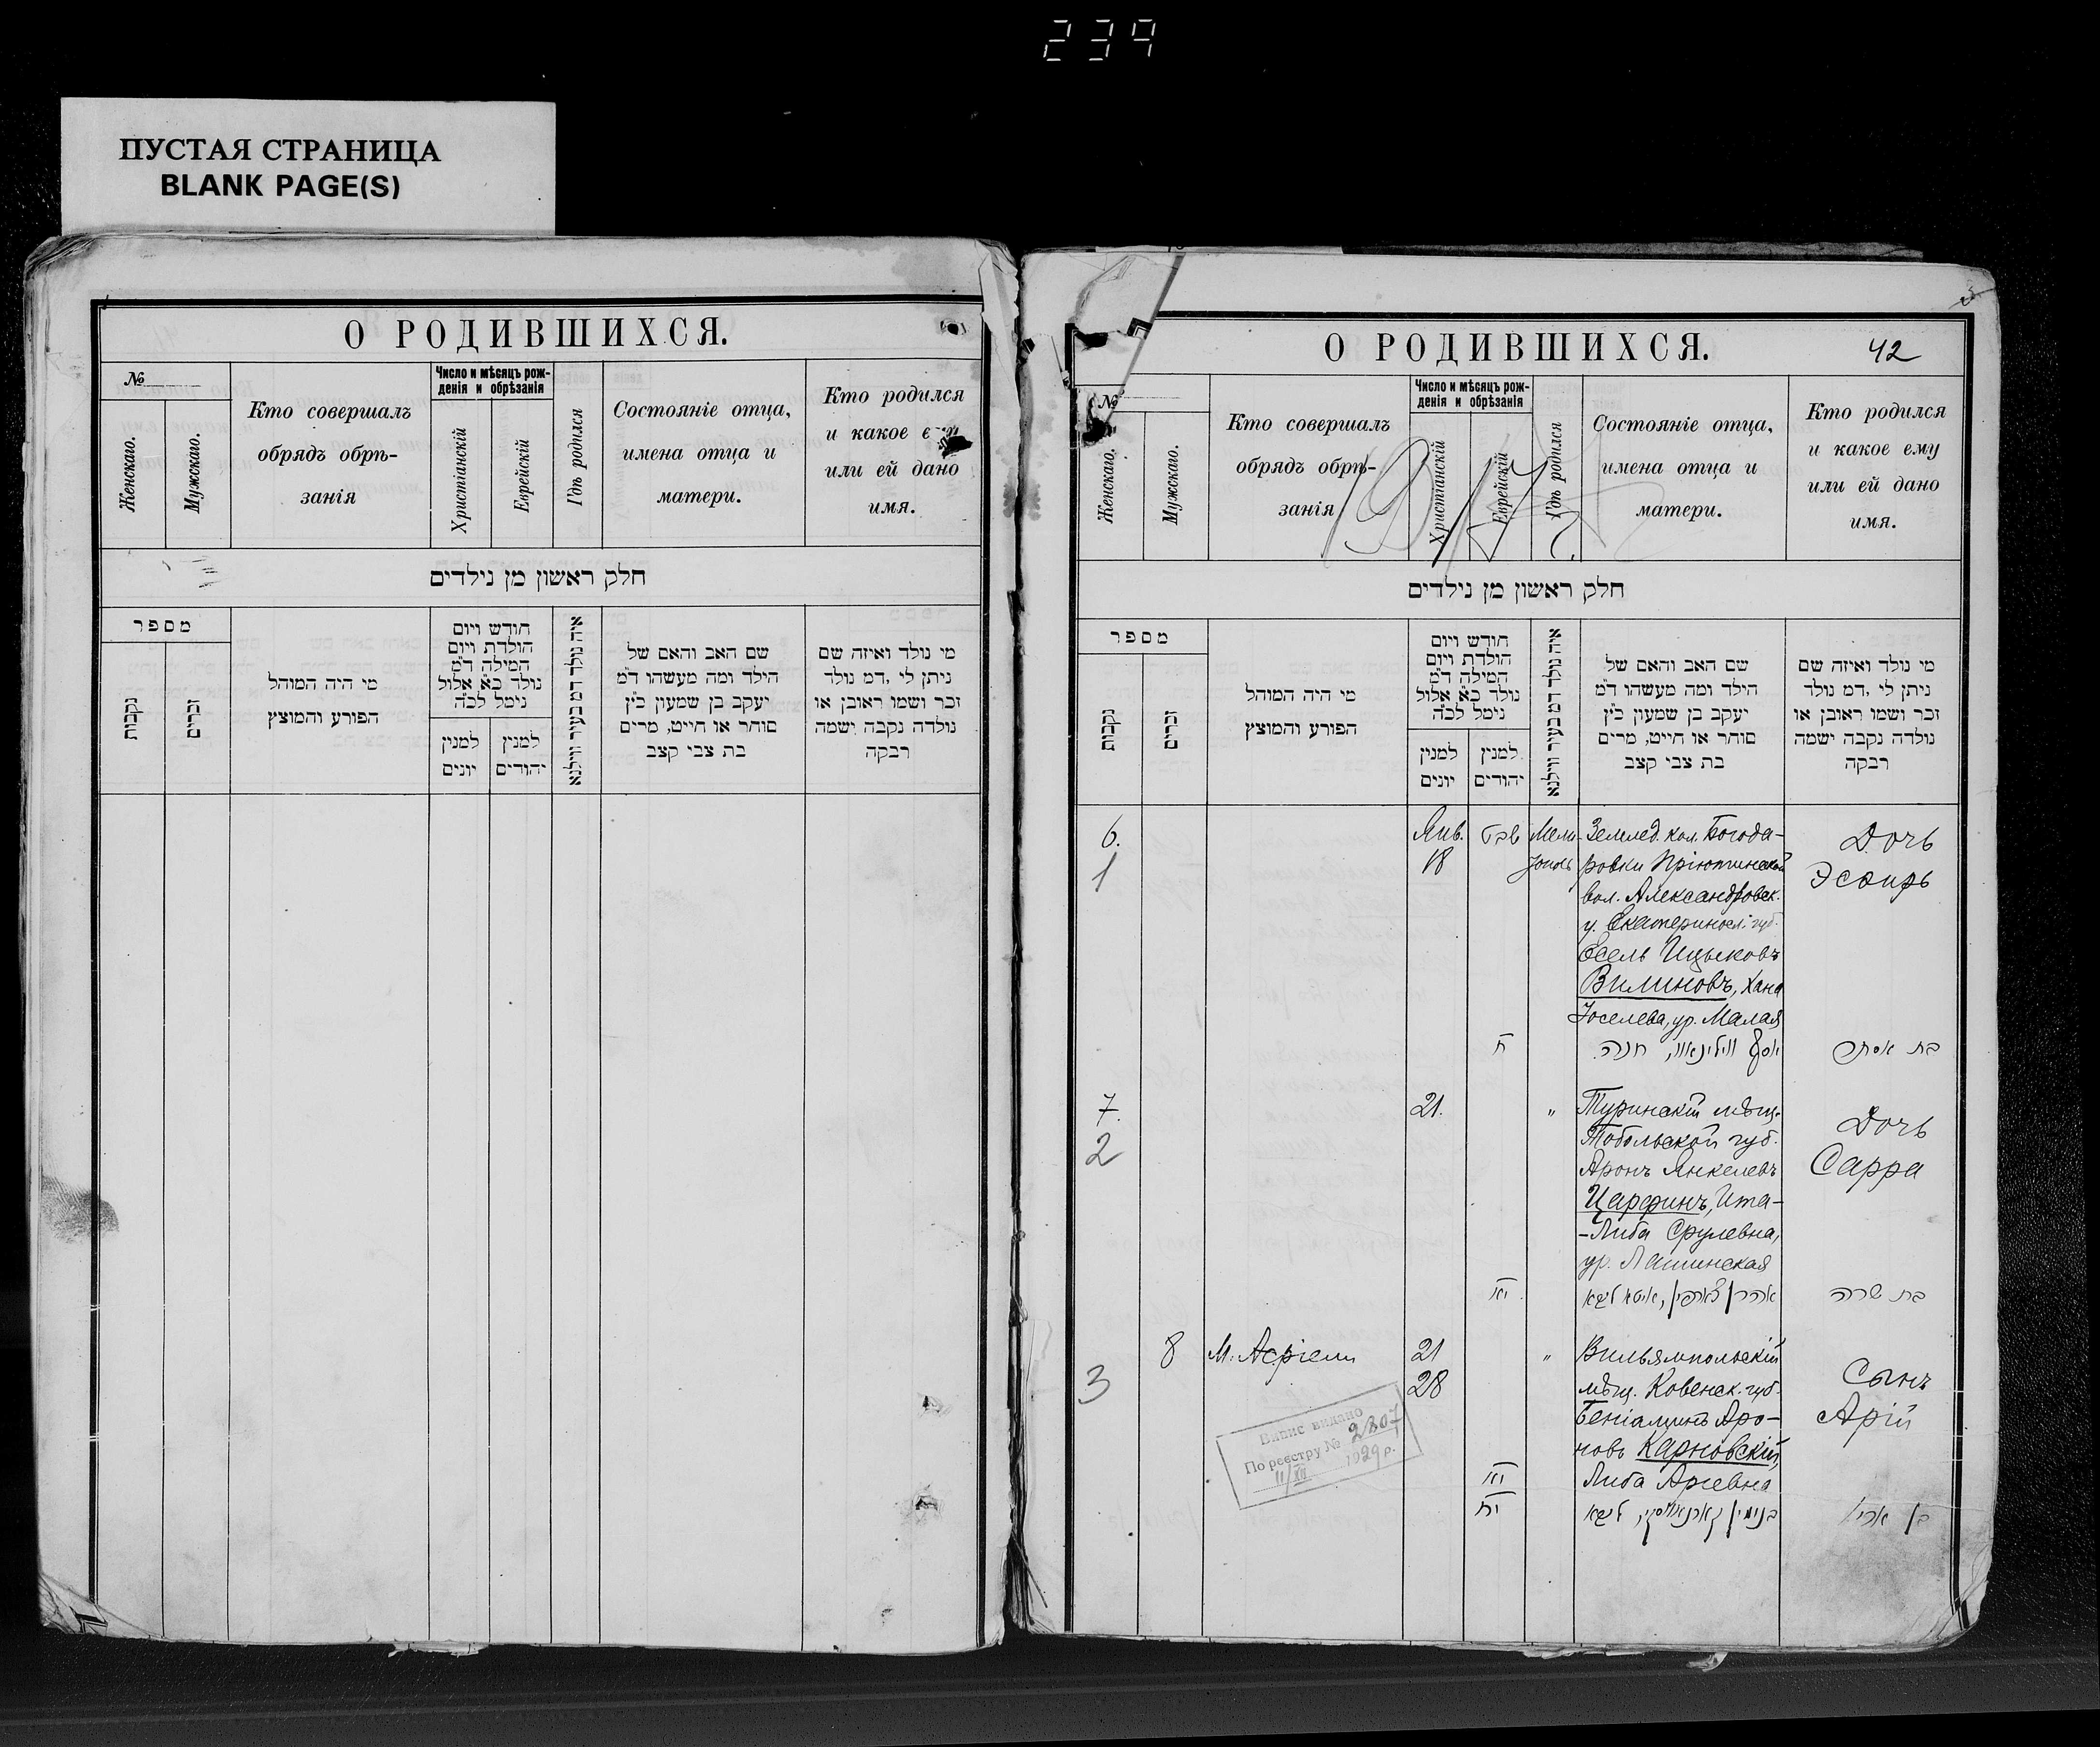 239
ПУСТАЯ СТРАНИЦА
BLANK PAGE(S)
О РОДИВШИХСЯ.
№
Женскаго.
Мужскаго.
Кто совершалъ
обрядъ обрѣ-
занія
Число и мѣсяцъ рож-
денія и обрѣзанія
Христіанскій
Еврейскій
Гдѣ родился
Состояніе отца,
имена отца и
матери.
Кто родился
и какое е
или ей дано
имя.
חלק ראשון מן נילדים
מספר
נקבות
זכרים
מי היה המוהל
הפורע והמוצץ
חודש ויום
הולדת ויום
המילה ד״מ
נולד כ״א אלול
נימל לכ״ה
למנין
יונים
למנין
יהודים
איה נולד דמ בעיר ווילנא
שם האב והאם של
הילד ומה מעשהו ד״מ
יעקב בן שמעון כ״ץ
סוחר או חייט, מרים
בת צבי קצב
מי נולד ואיזה שם
ניתן לי, דמ נולד
זכר ושמו ראובן או
נולדה נקבה ישמה
רבקה
О РОДИВШИХСЯ.
42
№
Женскаго.
Мужскаго.
Кто совершалъ
обрядъ обрѣ-
занія
Число и мѣсяцъ рож-
денія и обрѣзанія
Христіанскій
Еврейскій
Гдѣ родился
Состояніе отца,
имена отца и
матери.
Кто родился
и какое ему
или ей дано
имя.
חלק ראשון מן נילדים
מספר
נקבות
זכרים
מי היה המוהל
הפורע והמוצץ
חודש ויום
הולדת ויום
המילה ד״מ
נולד כ״א אלול
נימל לכ״ה
למנין
יונים
למנין
יהודים
איה נולד דמ בעיר ווילנא
שם האב והאם של
הילד ומה מעשהו ד״מ
יעקב בן שמעון כ״ץ
סוחר או חייט, מרים
בת צבי קצב
מי נולד ואיזה שם
ניתן לי, דמ נולד
זכר ושמו ראובן או
נולדה נקבה ישמה
רבקה
6.
1
Янв.
18
שבט
Мели-
тополь
Землед. кол. Богода-
ровки Пріютинской
вол. Александровск.
у. Екатериносл. губ.
Есель Ицыковъ
Вилиновъ, Хана
Іоселева, ур. Малая
ח
יוסף ווילינאוו, חנה.
Дочь
Эсфирь
בת אסתר
7.
2
21.
"
Туринскій мѣщ.
Тобольской губ.
Аронъ Янкелевъ
Царфинъ, Ита-
-Либа Срулевна,
ур. Лашинская
יא
אהרן צארפין, איטא ליבא
Дочь
Сарра
בת שרה
8
3
М. Асріели
21
28
"
Вильямпольскій
мѣщ. Ковенск. губ.
Беніаминъ Аро-
новъ Карновскій,
Либа Аріевна
יא
יח
בנימין קארנאווסקי, ליבא
Сынъ
Арій
בן ארי'
Випис видано
По реєстру № 2807
11/XII 1929 р.